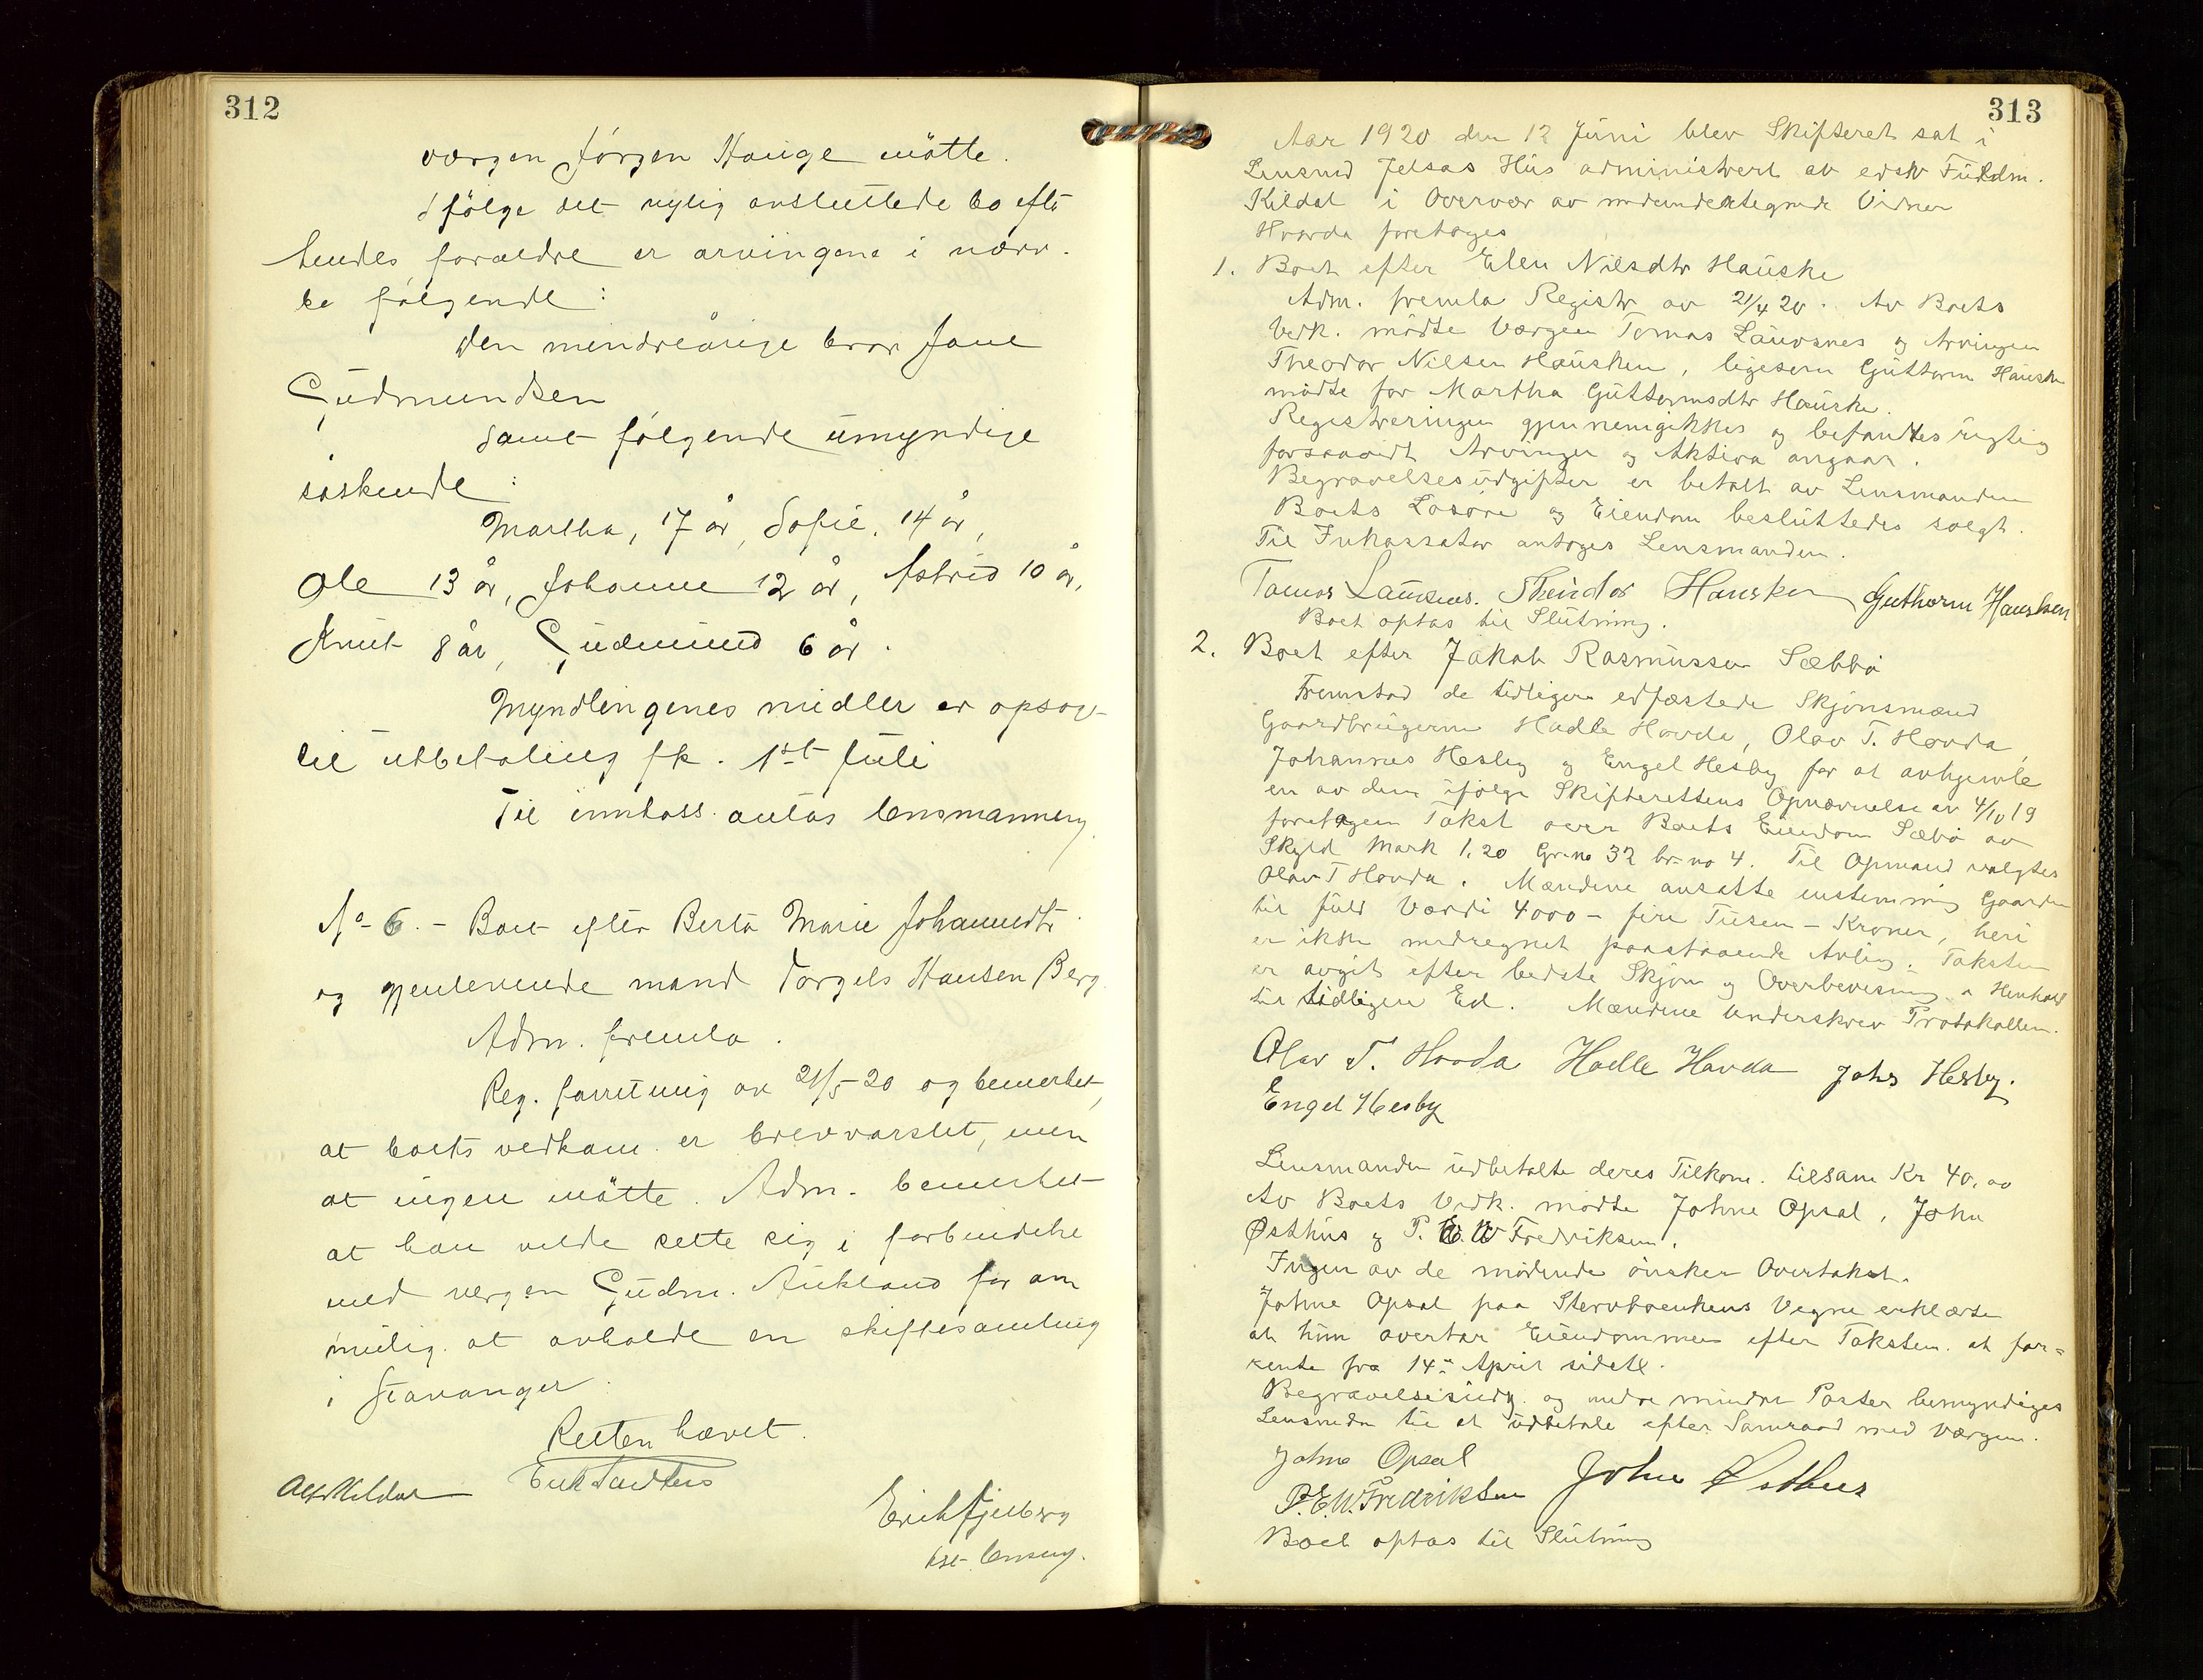 312
værgen Jørgen Hauge møtte.
Ifølge det nylig avsluttede bo efter
hendes forældre er arvingene i nærv.
bo følgende:
den mindreårige bror Jone
Gudmundsen
samt følgende umyndige
søskende:
Martha, 17 år, Sofie, 14 år,
Ole 13 år, Johanne 12 år, Astrid 10 år,
Knut 8 år, Gudmund 6 år.
Myndlingenes midler er opsagt
til utbetaling fk. 1st Juli
Til innkass. antas lensmannen.
No 6. - Boet efter Berta Marie Johannsdtr.
og gjenlevende mand Torgels Hansen Berg.
Adm. fremla.
Reg. forretning av 21/5-20 og bemerket,
at boets vedkom. er brevvarslet, men
at ingen møtte. Adm. bemerket
at han vilde sette sig i forbindelse
med vergen Gudm. Aukland for om
mulig at avholde en skiftesamling
i Stavanger.
Retten hævet.
Alf Kildal
Erich Fjelberg
kst. lensm.
313
Aar 1920 den 12 Juni blev Skifteret sat i
Lensmd Jelsas Hus administrert av edsv Fuldm.
Kildal i Overvær av nedenundertegnede Vidner
Hvorda foretoges
1. Boet efter Elen Nilsdtr Hauske
Adm. fremla Registr av 21/4 20. Av Boets
Vedk. mødte Værgen Tomas Lauvsnes og Arvingen
Theodor Nilsen Hausken, ligesom Guttorm Hausken
mødte for Martha Guttormsdtr Hauske.
Registreringen gjennemgikkes og befandtes rigtig
forsaavidt Arvinger og Aktiva angaar.
Begravelsesudgifter er betalt av Lensmanden
Boets Løsøre og Eiendom besluttedes solgt.
Til Inkassator antoges Lensmanden.
Tomas Lauvsnes. Theodor Hausken Guthorm Hausken
Boet optas til Slutning.
2. Boet efter Jakob Rasmussen Sæbbø
Fremstod de tidligere edfæstede Skjønsmænd
Gaardbrugerne Hadle Hovda, Olav T. Hovda,
Johannes Hesby og Engel Hesby for at avhjemle
en av dem ifølge Skifterettens Opnævnelse av 4/10 19
foretagen Takst over Boets Eiendom Sæbø av
Skyld Mark 1,20 Gr.no 32 br.no 4. Til Opmand valgtes
Olav T Hovda. Mændene ansatte enstemmig Gaarden
til fuld Værdi 4000 - fire Tusen - Kroner, heri
er ikke medregnet paastaaende Avling. Taksten
er avgit efter bedste Skjøn og Overbevisning i Henhold
til tidligere Ed. Mændene underskrev Protokollen.
Olav T. Hovda Hadle Hovda Johs Hesby.
Engel Hesby
Lensmanden udbetalte deres Tilkom. tilsam Kr 40,00
Av Boets Vedk. mødte Johne Opsal, John
Østhus og P. E. W Fredriksen.
Ingen av de mødende ønsker Overtakst.
Johne Opsal paa Stervboenkens Vegne erklærte
at hun overtar Eiendommen efter Taksten at for=
rente fra 14de April sidstl.
Begravelsesudg. og andre mindre Poster bemyndiges
Lensmdn til at udbetale efter Samraad med Værgen.
Johne Opsal
P. E. W. Fredriksen John Østhus
Boet optas til Slutning